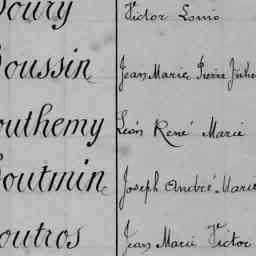 oury Victor Louis
oussin Jean Marie Pierre
outhemy Léon René Marie
outmin Joseph André Marie
outros Jean Marie Victor